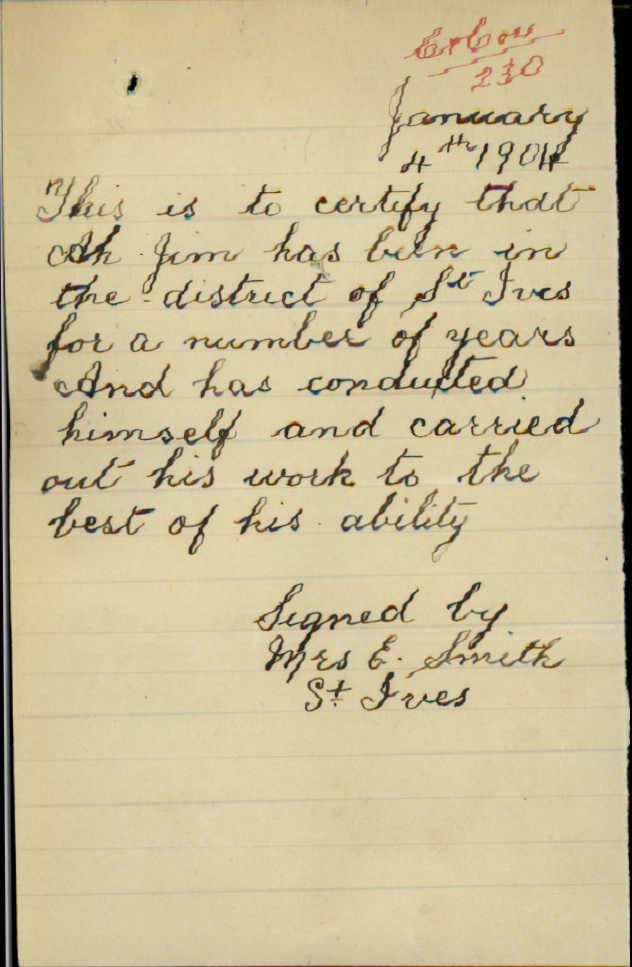 230
January
4th 1904
This is to certify that
Ah Jim has been in
the district of St Ives
for a number of years
And has conducted
himself and carried
out his work to the
best of his ability
Signed by
Mrs E. Smith
St Ives